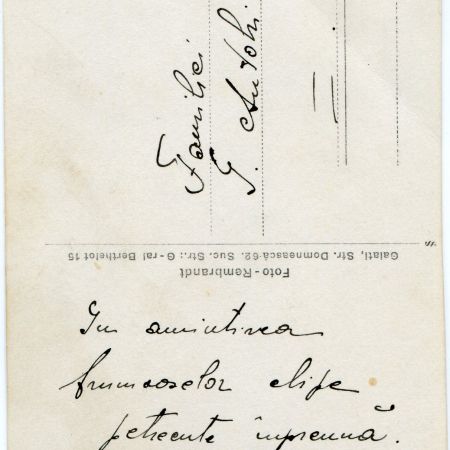 Familiei
G. Antohi
Foto-Rembrandt
Galati, Str. Domnească 62. Suc. Str.: G-ral Berthelot 15
In amintirea
frumoaselor clipe
petrecute împreună.